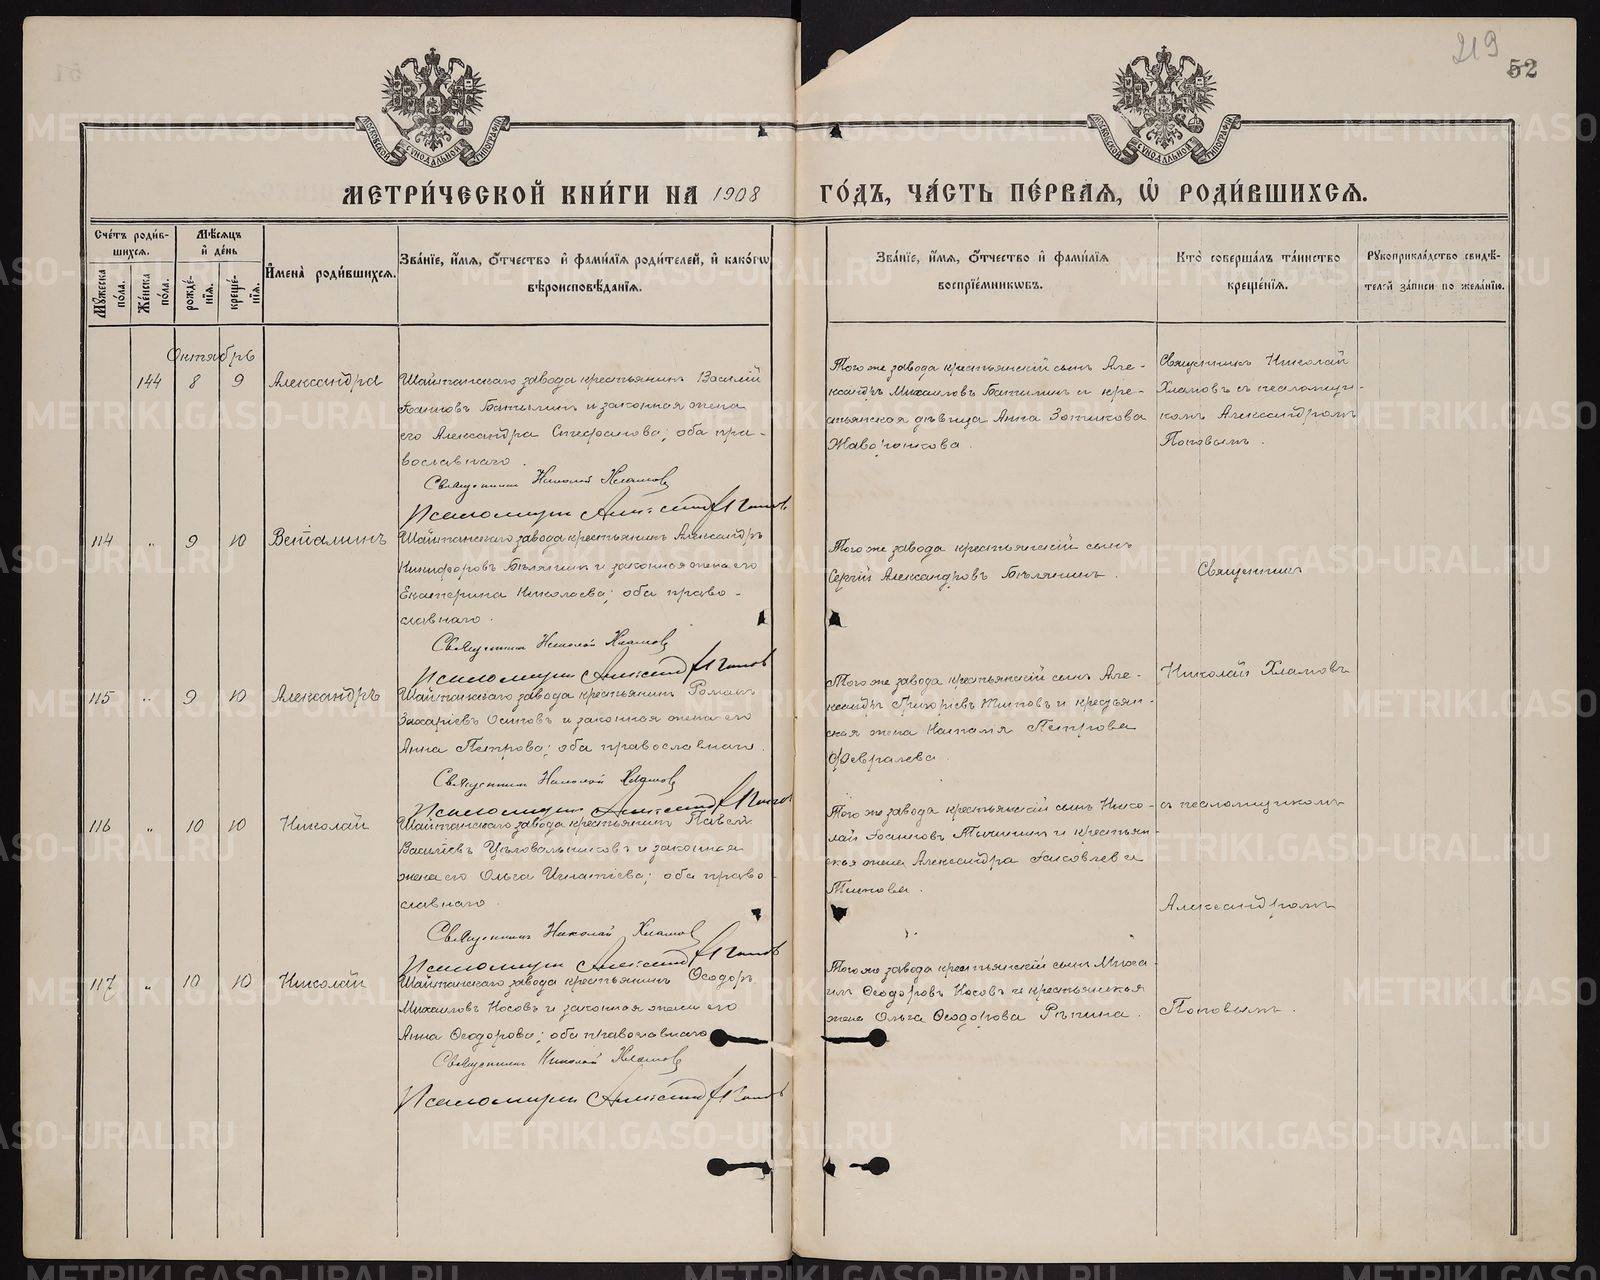 219
52
МОСКОВСКОЙ СѴНОДАЛЬНОЙ ТИПОГРАФІИ
МОСКОВСКОЙ СѴНОДАЛЬНОЙ ТИПОГРАФІИ
МЕТРИ́ЧЕСКОЙ КНИ́ГИ НА 1908 ГО́ДЪ, ЧА́СТЬ ПЕ́РВАЯ, Ѽ РОДИ́ВШИХСЯ.
Сче́тъ роди́в-
шихся.
Мꙋ́жеска по́ла.
Же́нска по́ла.
Мѣ́сяцъ
и҆ де́нь
рожде́-
нїя.
креще́-
нїя.
И҆мена̀ роди́вшихся.
Зва́нїе, и҆́мя, ѻ҆́тчество и҆ фами́лїя роди́телей, и҆ како́гѡ
вѣроисповѣ́данїя.
Зва́нїе, и҆́мя, ѻ҆́тчество и҆ фами́лїя
воспрїе́мникѡвъ.
Кто̀ соверша́лъ та́инство
креще́нїя.
Рꙋкоприкла́дство свидѣ́-
телей за́писи по жела́нїю.
Октябрь
144 8 9 Александра
Шайтанскаго завода крестьянинъ Василій
Іоанновъ Батылинъ и законная жена
его Александра Стефанова; оба пра-
вославнаго.
Священникъ Николай Хламовъ
Псаломщикъ Александръ Поповъ
Того же завода крестьянскій сынъ Але-
ксандръ Михаиловъ Батылинъ и кре-
стьянская дѣвица Анна Зотикова
Жаворонкова.
Священникъ Николай
Хламовъ съ псаломщи-
комъ Александромъ
Поповымъ.
114 " 9 10 Веніаминъ
Шайтанскаго завода крестьянинъ Александръ
Никифоровъ Бѣлянинъ и законная жена его
Екатерина Николаева; оба право-
славнаго.
Священникъ Николай Хламовъ
Псаломщикъ Александръ Поповъ
Того же завода крестьянскій сынъ
Сергій Александровъ Бѣлянинъ.
Священникъ
115 " 9 10 Александръ
Шайтанскаго завода крестьянинъ Романъ
Захаріевъ Осиповъ и законная жена его
Анна Петрова; оба православнаго.
Священникъ Николай Хламовъ
Псаломщикъ Александръ Поповъ
Того же завода крестьянскій сынъ Але-
ксандръ Григоріевъ Титовъ и крестьян-
ская жена Наталія Петрова
Февралева.
Николай Хламовъ
116 " 10 10 Николай
Шайтанскаго завода крестьянинъ Павелъ
Василіевъ Цѣловальниковъ и законная
жена его Ольга Игнатіева; оба право-
славнаго.
Священникъ Николай Хламовъ
Псаломщикъ Александръ Поповъ
Того же завода крестьянскій сынъ Нико-
лай Іоанновъ и крестьян-
ская жена Александра Іаковлева
Титова.
съ псаломщикомъ
Александромъ
117 " 10 10 Николай
Шайтанскаго завода крестьянинъ Ѳеодоръ
Михаиловъ Носовъ и законная жена его
Анна Ѳеодорова; оба православнаго
Священникъ Николай Хламовъ
Псаломщикъ Александръ Поповъ
Того же завода крестьянскій сынъ Миха-
илъ Ѳеодоровъ Носовъ и крестьянская
жена Ольга Ѳеодорова Рѣпина.
Поповымъ.
METRIKI.GASO-URAL.RU